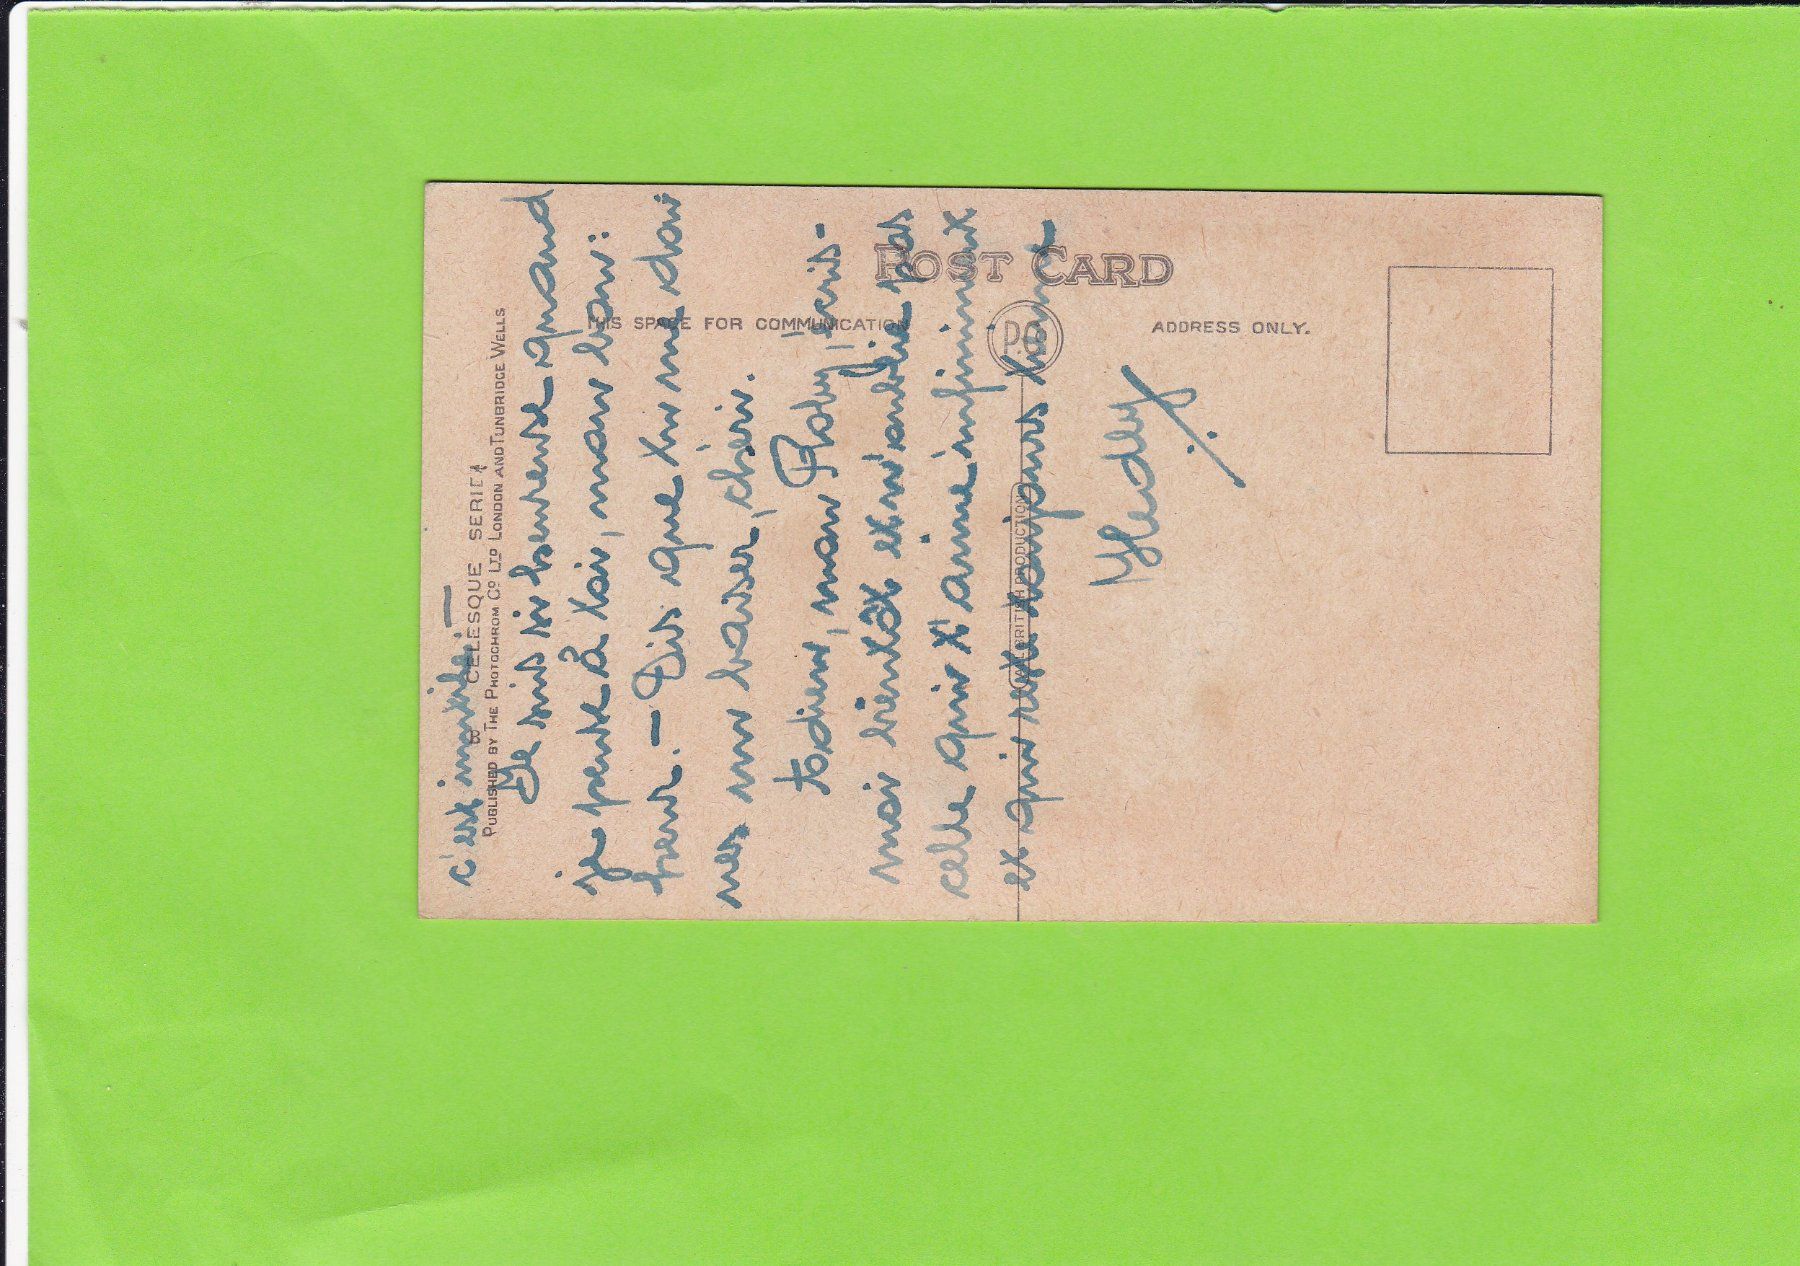 POST CARD
THIS SPACE FOR COMMUNICATION
ADDRESS ONLY.
P.C
CELESQUE SERIES
PUBLISHED BY THE PHOTOCHROM CO LTD LONDON AND TUNBRIDGE WELLS
ALL BRITISH PRODUCTION
c'est inutile. —
Je suis si heureuse quand
je pense à toi, mon bon:
heur. — Dis que tu me don
nes un baiser, chéri.
todieu, mon Roby, écris-
moi bientôt et n'oublie pas
celle qui t'aime infiniment
et qui reste toujours
Heddy